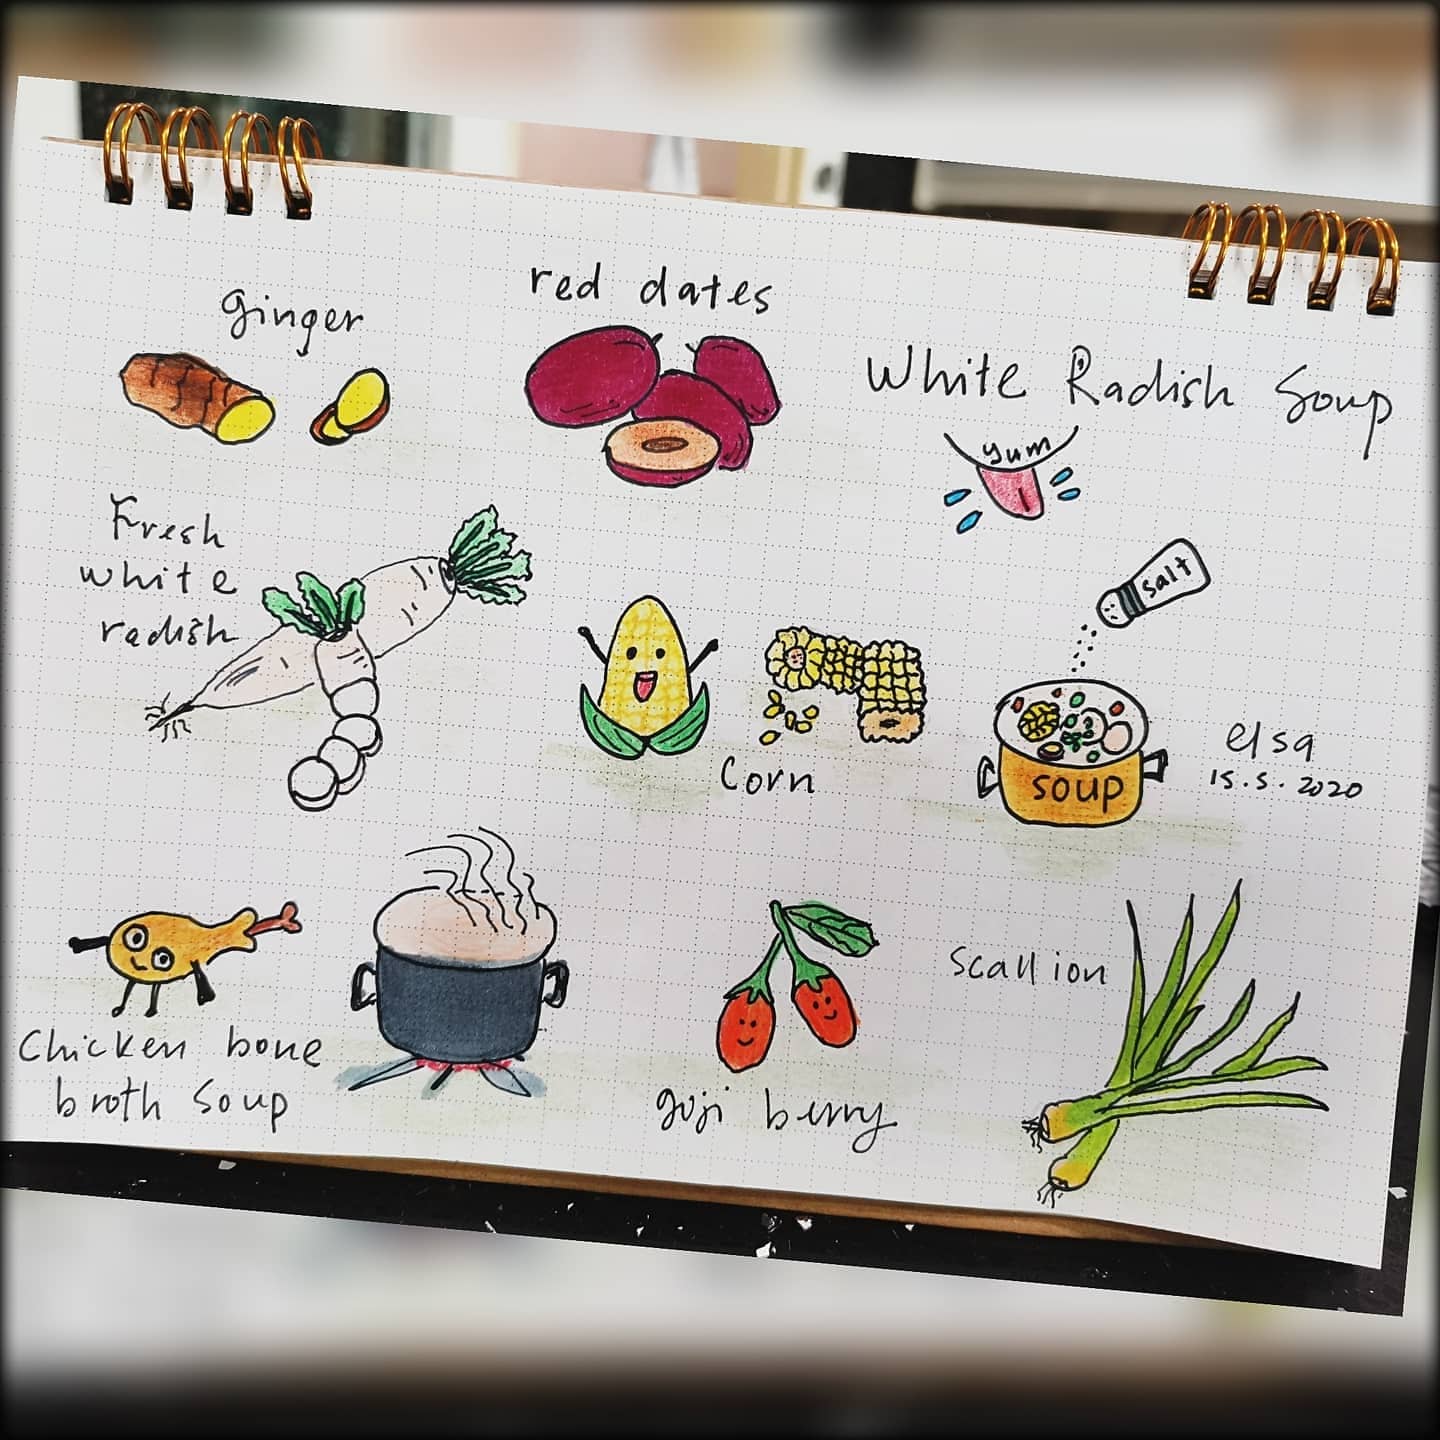 ginger
red dates
White Radish Soup
yum
Fresh
white
radish
salt
Corn
soup
elsa
15.5.2020
Chicken bone
broth soup
goji berry
scallion